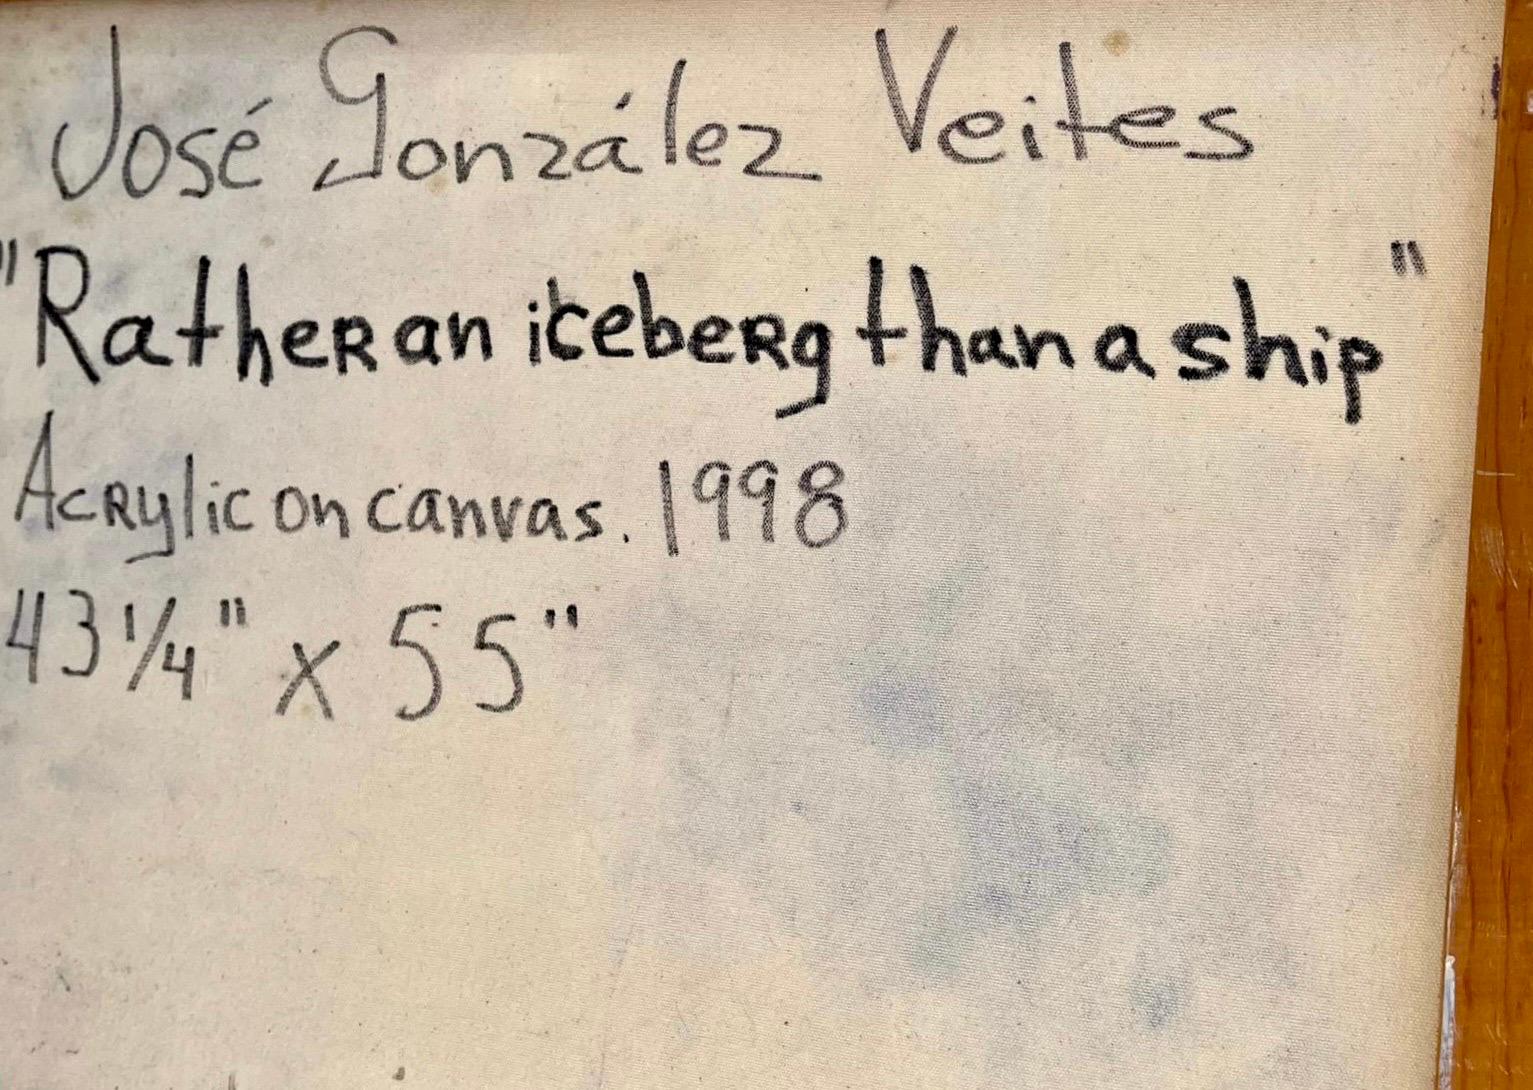 José González Veites
"Rather an iceberg than a ship"
Acrylic on canvas. 1998
43 1/4" x 55"